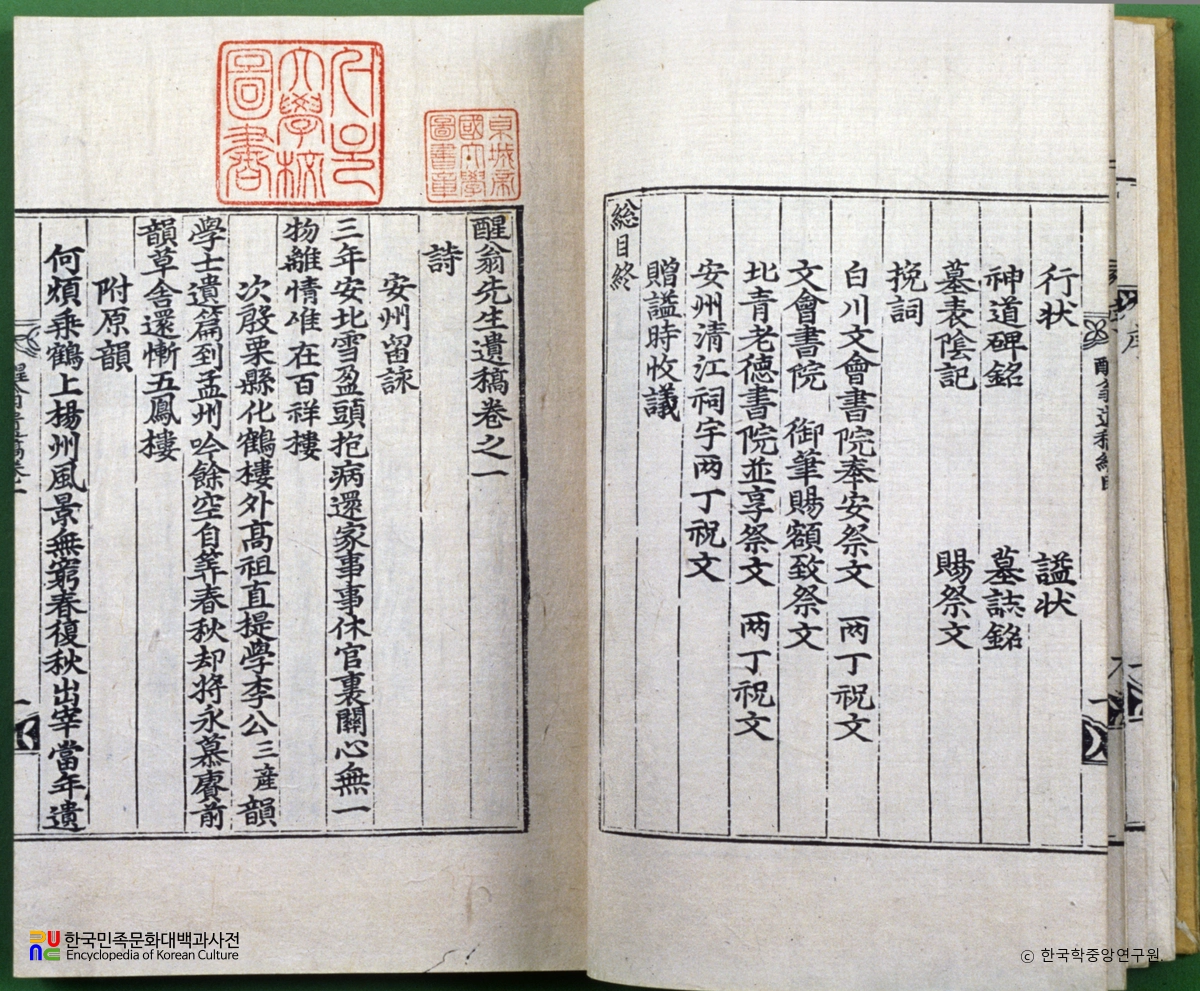 行状 謚状
神道碑銘 墓誌銘
墓表陰記 賜祭文
挽詞
白川文會書院奉安祭文 两丁祝文
文會書院 御筆賜額致祭文
北青老德書院並享祭文 两丁祝文
安州清江祠宇两丁祝文
贈謚時收議
総目終
醒翁先生遺稿卷之一
詩
安州留詠
三年安北雪盈頭抱病還家事事休官裏關心無一
物離情唯在百祥樓
次殷栗縣化鶴樓外高祖直提學李公三産韻
學士遺篇到孟州吟餘空自筭春秋却將永慕賡前
韻草舍還慚五鳳樓
附原韻
何煩乗鶴上揚州風景無窮春復秋出宰當年遺
東城帝
國大學
圖書章
大學校
圖書
한국민족문화대백과사전
Encyclopedia of Korean Culture
ⓒ 한국학중앙연구원